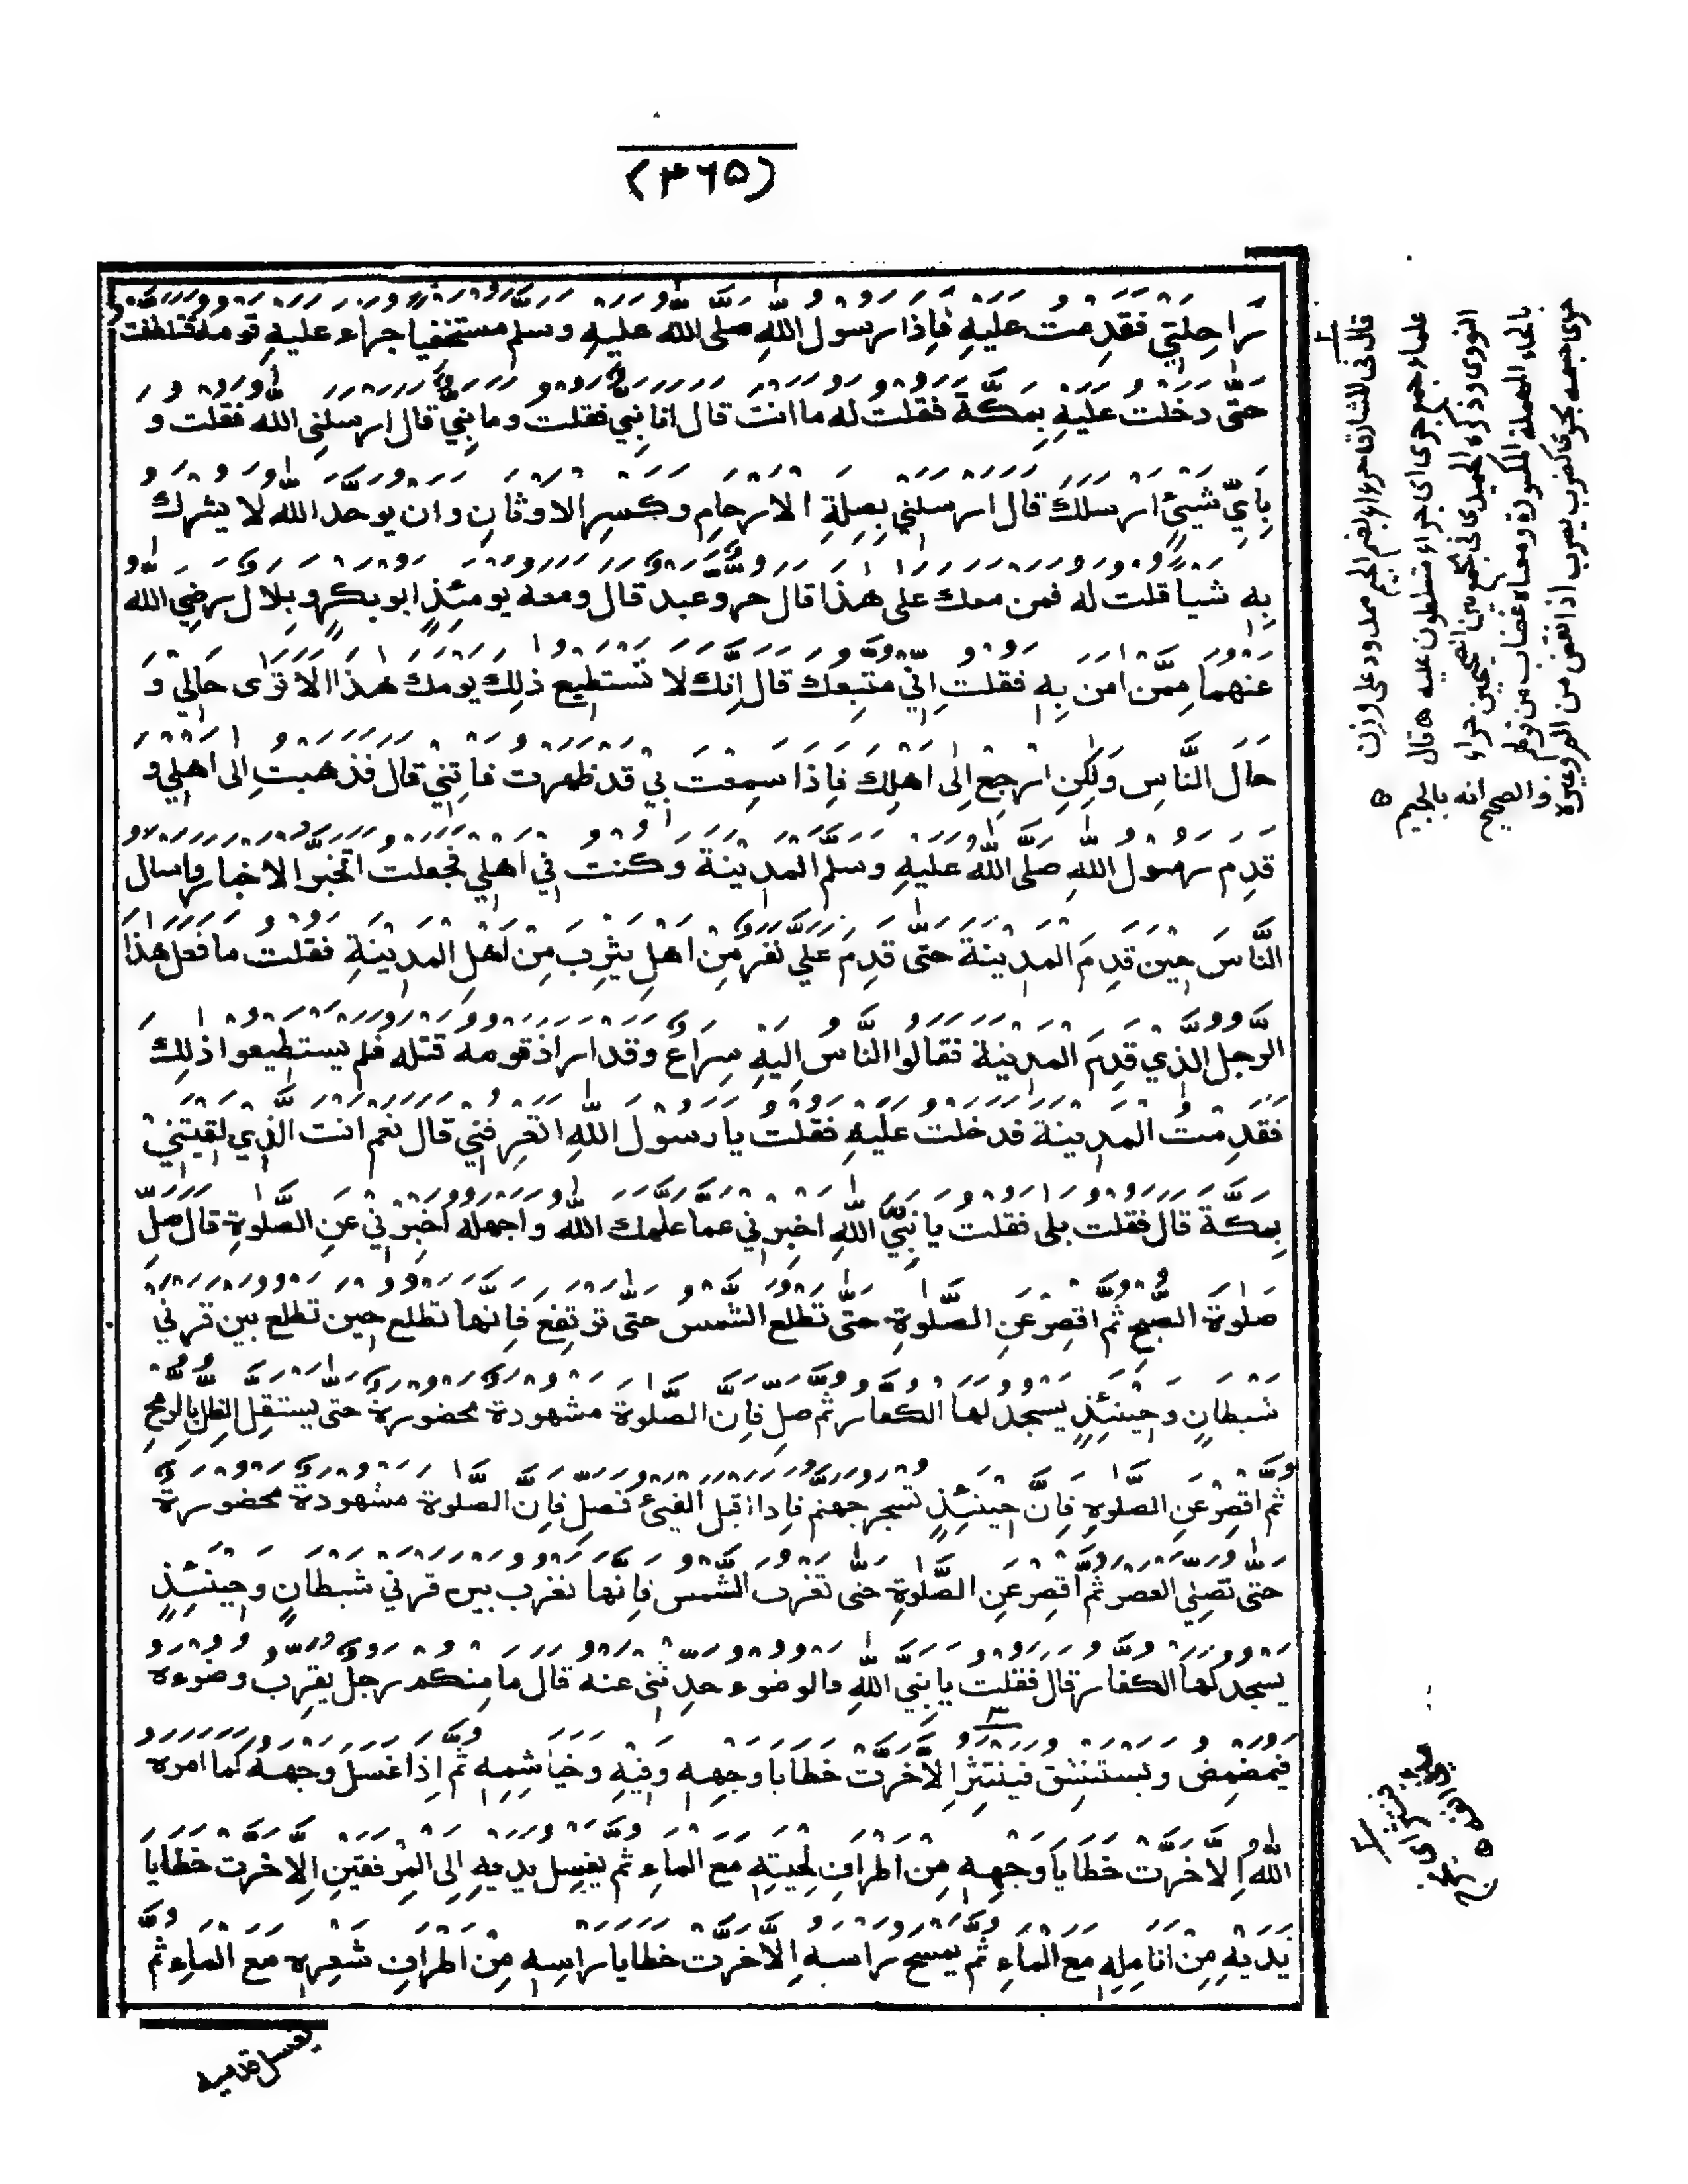 (۳۶۵)
راحلتي فقدمت عليه فاذا رسول الله صلى الله عليه وسلم مستخفيا جراء عليه قومه فتلطفت
حتى دخلت عليه بمكة فقلت له ما انت قال انا نبي فقلت وما نبي قال ارسلنى الله فقلت و
باي شيئ ارسلك قال ارسلني بصلة الارحام وكسر الاوثان وان يوحد الله لا يشرك
به شيا قلت له فمن معك على هذا قال حر وعبد قال ومعه يومئذ ابو بكر وبلال رضي الله
عنهما ممن امن به فقلت اني متبعك قال انك لا تستطيع ذلك يومك هذا الا ترى حالي و
حال الناس ولكن ارجع الى اهلك فاذا سمعت بي قد ظهرت فاتني قال فذهبت الى اهلي و
قدم رسول الله صلى الله عليه وسلم المدينة وكنت في اهلي فجعلت اتخبر الاخبار واسال
الناس حين قدم المدينة حتى قدم علي نفر من اهل يثرب من اهل المدينة فقلت ما فعل هذا
الرجل الذي قدم المدينة فقالوا الناس اليه سراع وقد اراد قومه قتله فلم يستطيعوا ذلك
فقدمت المدينة فدخلت عليه فقلت يا رسول الله اتعرفني قال نعم انت الذي لقيتني
بمكة قال فقلت بلى فقلت يا نبي الله اخبرني عما علمك الله واجهله اخبرني عن الصلوة قال صل
صلوة الصبح ثم اقصر عن الصلوة حتى تطلع الشمس حتى ترتفع فانها تطلع حين تطلع بين قرني
شيطان وحينئذ يسجد لها الكفار ثم صل فان الصلوة مشهودة محضورة حتى يستقل الظل بالرمح
ثم اقصر عن الصلوة فان حينئذ تسجر جهنم فاذا اقبل الفيئ فصل فان الصلوة مشهودة محضورة
حتى تصلي العصر ثم اقصر عن الصلوة حتى تغرب الشمس فانها تغرب بين قرني شيطان وحينئذ
يسجد لها الكفار قال فقلت يا نبي الله فالوضوء حدثنى عنه قال ما منكم رجل يقرب وضوءه
فيمضمض ويستنشق فينتثر الا خرت خطايا وجهه وفيه وخياشيمه ثم اذا غسل وجهه كما امره
الله الا خرت خطايا وجهه من اطراف لحيته مع الماء ثم يغسل يديه الى المرفقين الا خرت خطايا
يديه من انامله مع الماء ثم يمسح راسه الا خرت خطايا راسه من اطراف شعره مع الماء ثم
يغسل قدميه
قال فى المشارق جرءاء بضم الجيم ممدود على وزن
علماء جمع جرى اى جراء متسلطون عليه ه قال
النووى وذكره الحميدى فى الجمع بين الصحيحين حراء
بالحاء المهملة المكسورة ومعناه غضاب من قولهم
حرى جسمه يحرى كضرب يضرب اذا نقص من الم وغيره
والصحيح انه بالجيم ه